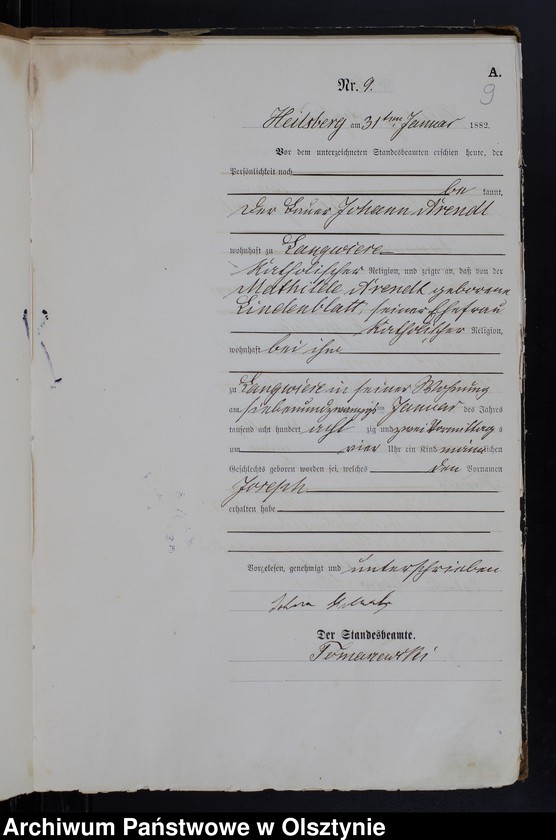 A.
Nr. 9.
9
Heilsberg am 31ten Januar 1882.
Vor dem unterzeichneten Standesbeamten erschien heute, der
Persönlichkeit nach
be kannt,
der Bauer Johann Arendt
wohnhaft zu Langwiese
Katholischer Religion, und zeigte an, daß von der
Mathilde Arendt geborene
Lindenblatt, seiner Ehefrau
Katholischer Religion,
wohnhaft bei ihm
zu Langwiese in seiner Wohnung
am siebenundzwanzigsten Januar des Jahres
tausend acht hundert acht zig und zwei Vormittags
um vier Uhr ein Kind männlichen
Geschlechts geboren worden sei, welches den Vornamen
Joseph
erhalten habe
Vorgelesen, genehmigt und unterschrieben
Der Standesbeamte.
Tomaszewski
Archiwum Państwowe w Olsztynie